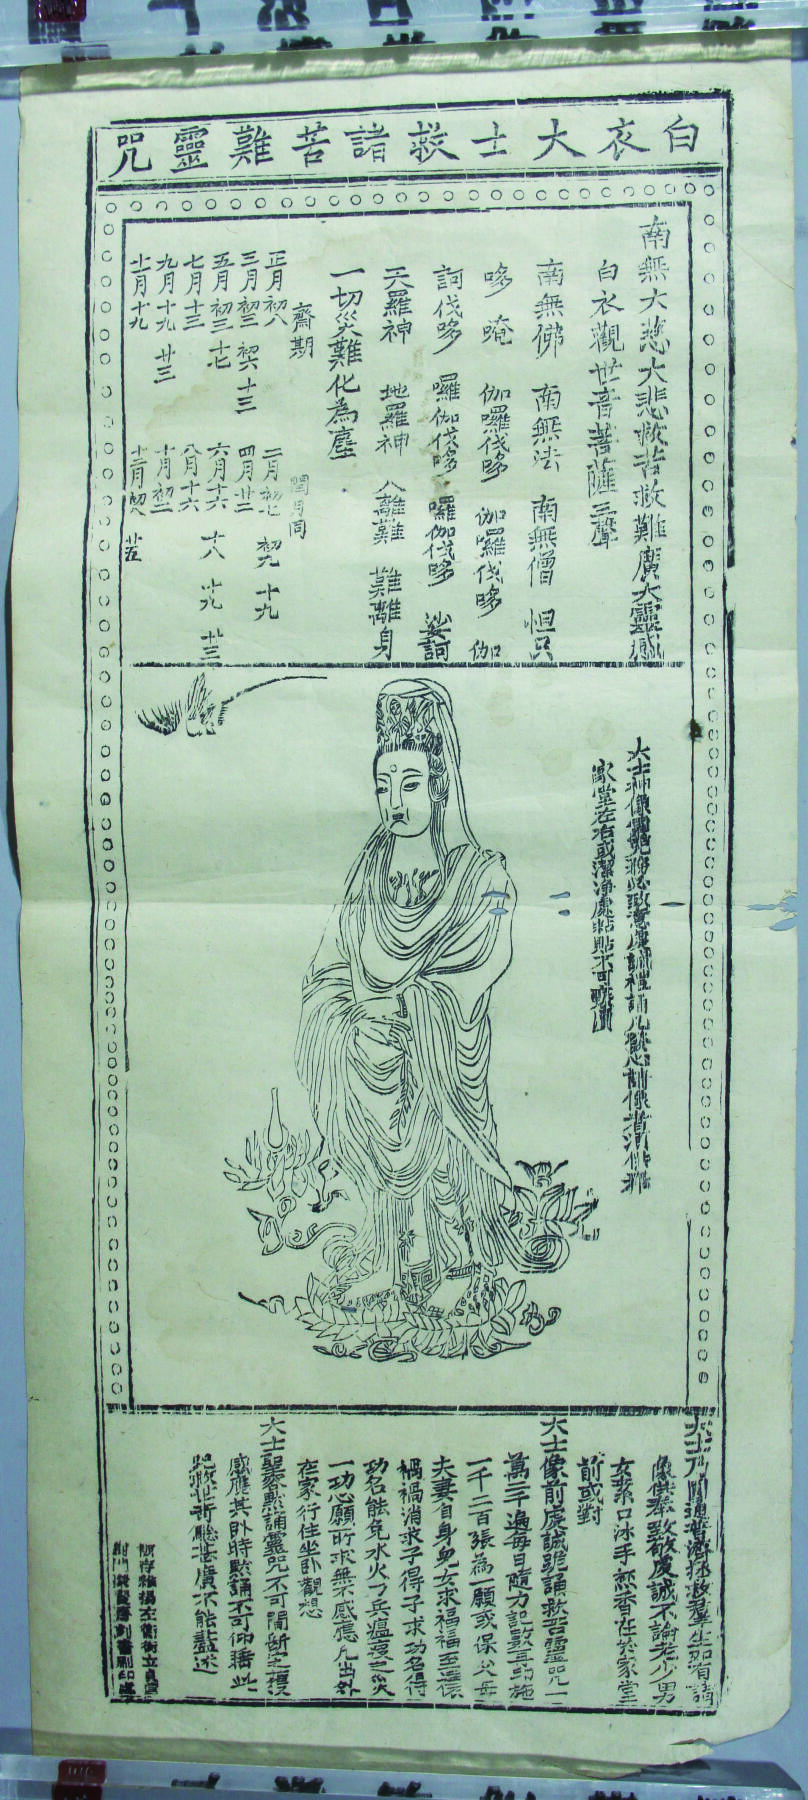 白衣大士救諸苦難靈咒
南無大慈大悲救苦救難廣大靈感
白衣觀世音菩薩三聲
南無佛 南無法 南無僧 怛只
哆唵 伽囉伐哆 伽囉伐哆 伽
訶伐哆 囉伽伐哆 囉伽伐哆 娑訶
天羅神 地羅神 人離難 難離身
一切災難化為塵
齋期 閏月同
正月初八 二月初七 初九 十九
三月初三 初六 十三 四月廿二
五月初三 十七 六月十六 十八 十九 廿三
七月十三 八月十六
九月十九 廿三 十月初二
十一月十九 十二月初八 廿五
大士神像
家堂左右或潔淨處粘貼不可褻
大士乃 普濟拯救羣生如有請
像供奉致敬虔誠不論老少男
女漱口沐手焚香在於家堂
前或對
大士像前虔誠跪誦救苦靈咒一
萬二千遍每日隨力記數再印施
一千二百張為一願或保父母
夫妻自身兒女求福福至遥
禍禍消求子得子求功名得
功名能免水火刀兵瘟疫之災
一切心願所求無不感應凡出外
在家行住坐卧觀想
大士聖容默誦靈咒不可間斷定
感應其卧時默誦不可仰睡此
咒救世術應甚廣不能盡述